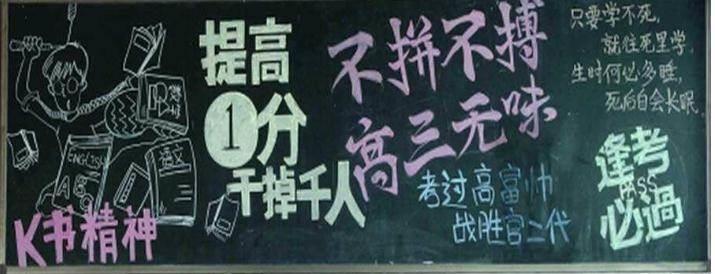 K书精神
ENGLISH
语文
提高
1分
干掉千人
不拼不搏
高三无味
考过高富帅
战胜官二代
只要学不死,
就往死里学,
生时何必多睡,
死后自会长眠。
逢考
PASS
必過